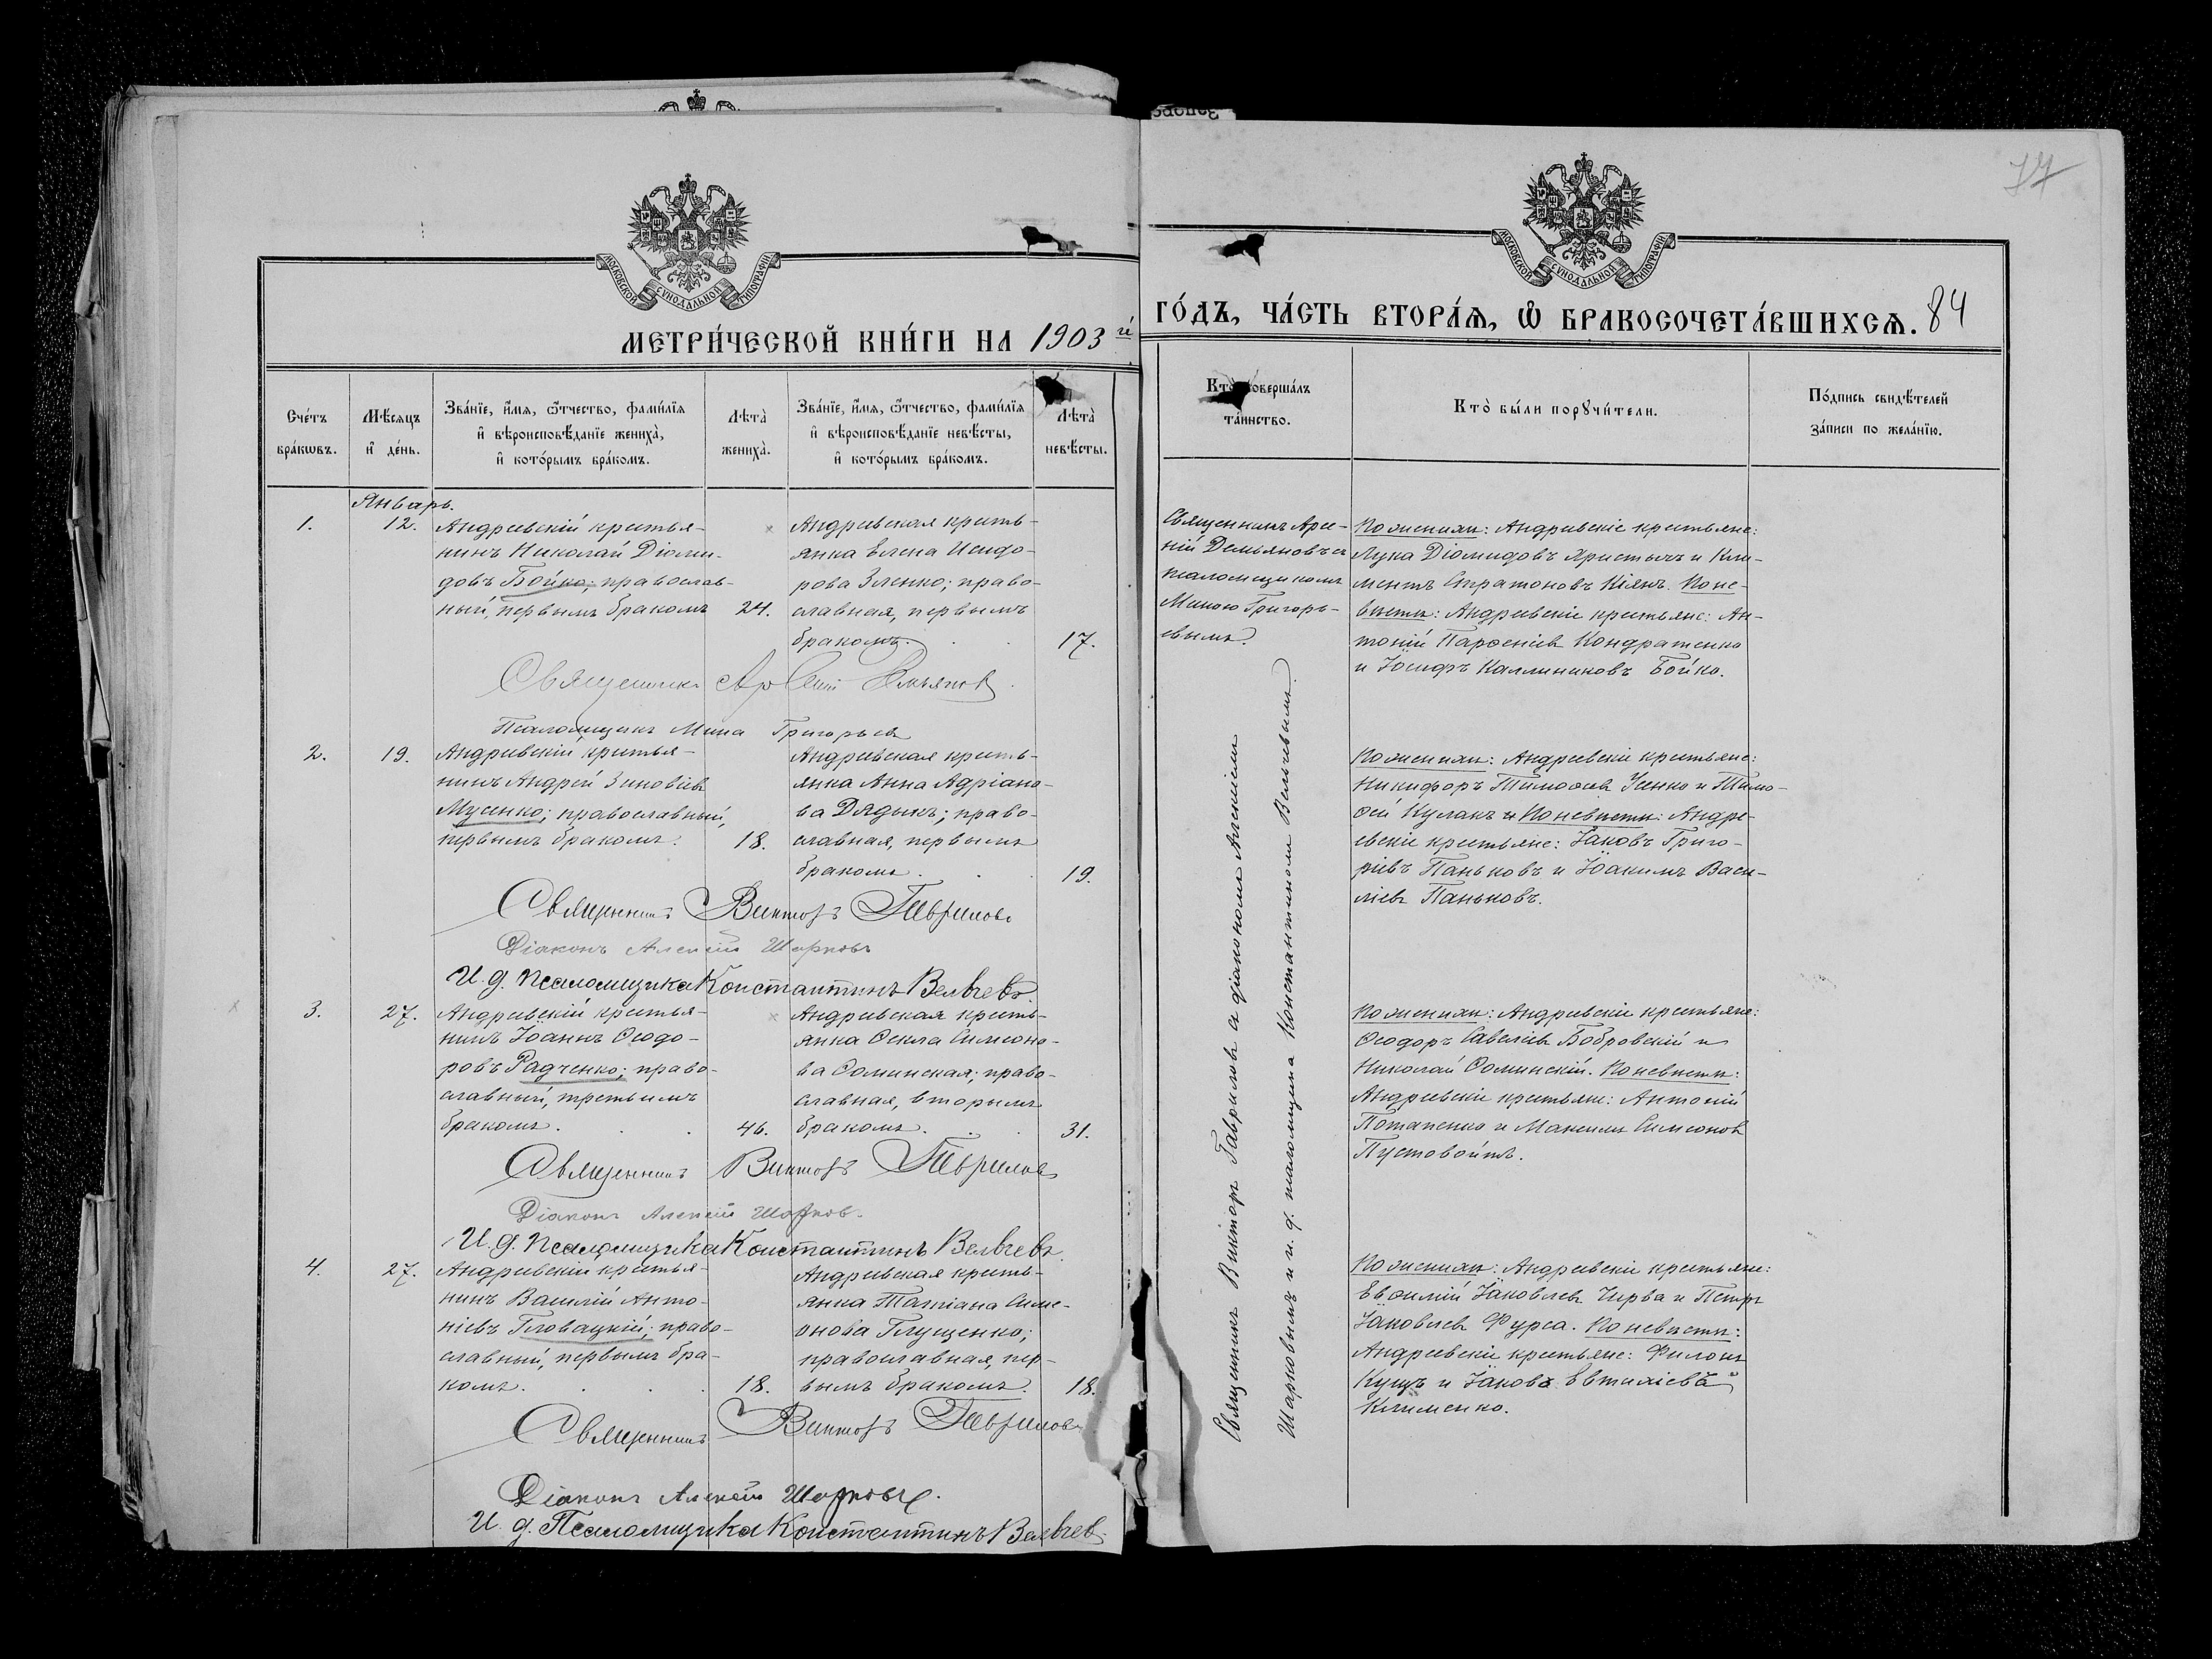 77
МОСКОВСКОЙ СѴНОДАЛЬНОЙ ТИПОГРАФІИ
МОСКОВСКОЙ СѴНОДАЛЬНОЙ ТИПОГРАФІИ
МЕТРИ́ЧЕСКОЙ КНИ́ГИ НА 1903 й
ГО́ДЪ, ЧА́СТЬ ВТОРА́Ѧ, Ѽ БРАКОСОЧЕТА́ВШИХСѦ. 84
Сче́тъ бра́кѡвъ.
Мѣ́сѧцъ и҆ де́нь.
Зва́нїе, и҆́мѧ, ѻ҆́тчество, фами́лїѧ
и҆ вѣроисповѣ́данїе жениха̀,
и҆ кото́рымъ бра́комъ.
Лѣта̀ жениха̀.
Зва́нїе, и҆́мѧ, ѻ҆́тчество, фами́лїѧ
и҆ вѣроисповѣ́данїе невѣ́сты,
и҆ кото́рымъ бра́комъ.
Лѣта̀ невѣ́сты.
Кто̀ соверша́лъ
та́инство.
Кто̀ бы́ли порꙋчи́тели.
По́дпись свидѣ́телей
за́писи по жела́нїю.
Январь.
1.
12.
Андреевскій крестья-
нинъ Николай Діоми-
довъ Бойко; православ-
ный, первымъ бракомъ
24.
Андреевская кресть-
янка Елена Исидо-
рова Зленко; право-
славная, первымъ
бракомъ.
17.
Священникъ Арсе-
ній Демьяновъ съ
псаломщикомъ
Миною Григорь-
евымъ.
По женихѣ: Андреевскіе крестьяне:
Лука Діомидовъ и Кли-
ментъ Стратоновъ Кіянъ. По не-
вѣстѣ: Андреевскіе крестьяне: Ан-
тоній Парѳеніевъ Кондратенко
и Іосифъ Каллиниковъ Бойко.
Священникъ Арсеній Демьяновъ
Псаломщикъ Мина Григорьевъ
2.
19.
Андреевскій крестья-
нинъ Андрей Зиновіевъ
Мусенко; православный,
первымъ бракомъ.
18.
Андреевская кресть-
янка Анна Адріано-
ва Дядыкъ; право-
славная, первымъ
бракомъ.
19.
По женихѣ: Андреевскіе крестьяне:
Никифоръ Тимоѳеевъ Усенко и Тимо-
ѳей Кулакъ и По невѣстѣ: Андре-
евскіе крестьяне: Іаковъ Григо-
ріевъ Паньковъ и Іоакимъ Васи-
ліевъ Паньковъ.
Священникъ Викторъ Гавриловъ
Діаконъ Алексій Шарковъ
И. д. Псаломщика Константинъ Вельчевъ.
3.
27.
Андреевскій крестья-
нинъ Іоаннъ Ѳеодо-
ровъ Радченко; право-
славный, третьимъ
бракомъ.
46.
Андреевская кресть-
янка Ѳекла Симеоно-
ва Соминская; право-
славная, вторымъ
бракомъ.
31.
По женихѣ: Андреевскіе крестьяне:
Ѳеодоръ Савеліевъ Бобровскій и
Николай Соминскій. По невѣстѣ:
Андреевскіе крестьяне: Антоній
Потапенко и Максимъ Симеоновъ
Пустовойтъ.
Священникъ Викторъ Гавриловъ
Діаконъ Алексій Шарковъ.
И. д. Псаломщика Константинъ Вельчевъ.
4.
27.
Андреевскій крестья-
нинъ Василій Анто-
ніевъ Гловацкій; право-
славный, первымъ бра-
комъ.
18.
Андреевская кресть-
янка Татіана Симе-
онова Глущенко;
православная, пер-
вымъ бракомъ.
18.
По женихѣ: Андреевскіе крестьяне:
Евѳимій Іаковлевъ Чирва и Петръ
Іаковлевъ Фурса. По невѣстѣ:
Андреевскіе крестьяне: Филонъ
Кущъ и Іаковъ
Клименко.
Священникъ Викторъ Гавриловъ
Діаконъ Алексій Шарковъ.
И. д. Псаломщика Константинъ Вельчевъ.
Священникъ Викторъ Гавриловъ съ діакономъ Алексіемъ
Шарковымъ и и. д. псаломщика Константиномъ Вельчевымъ.